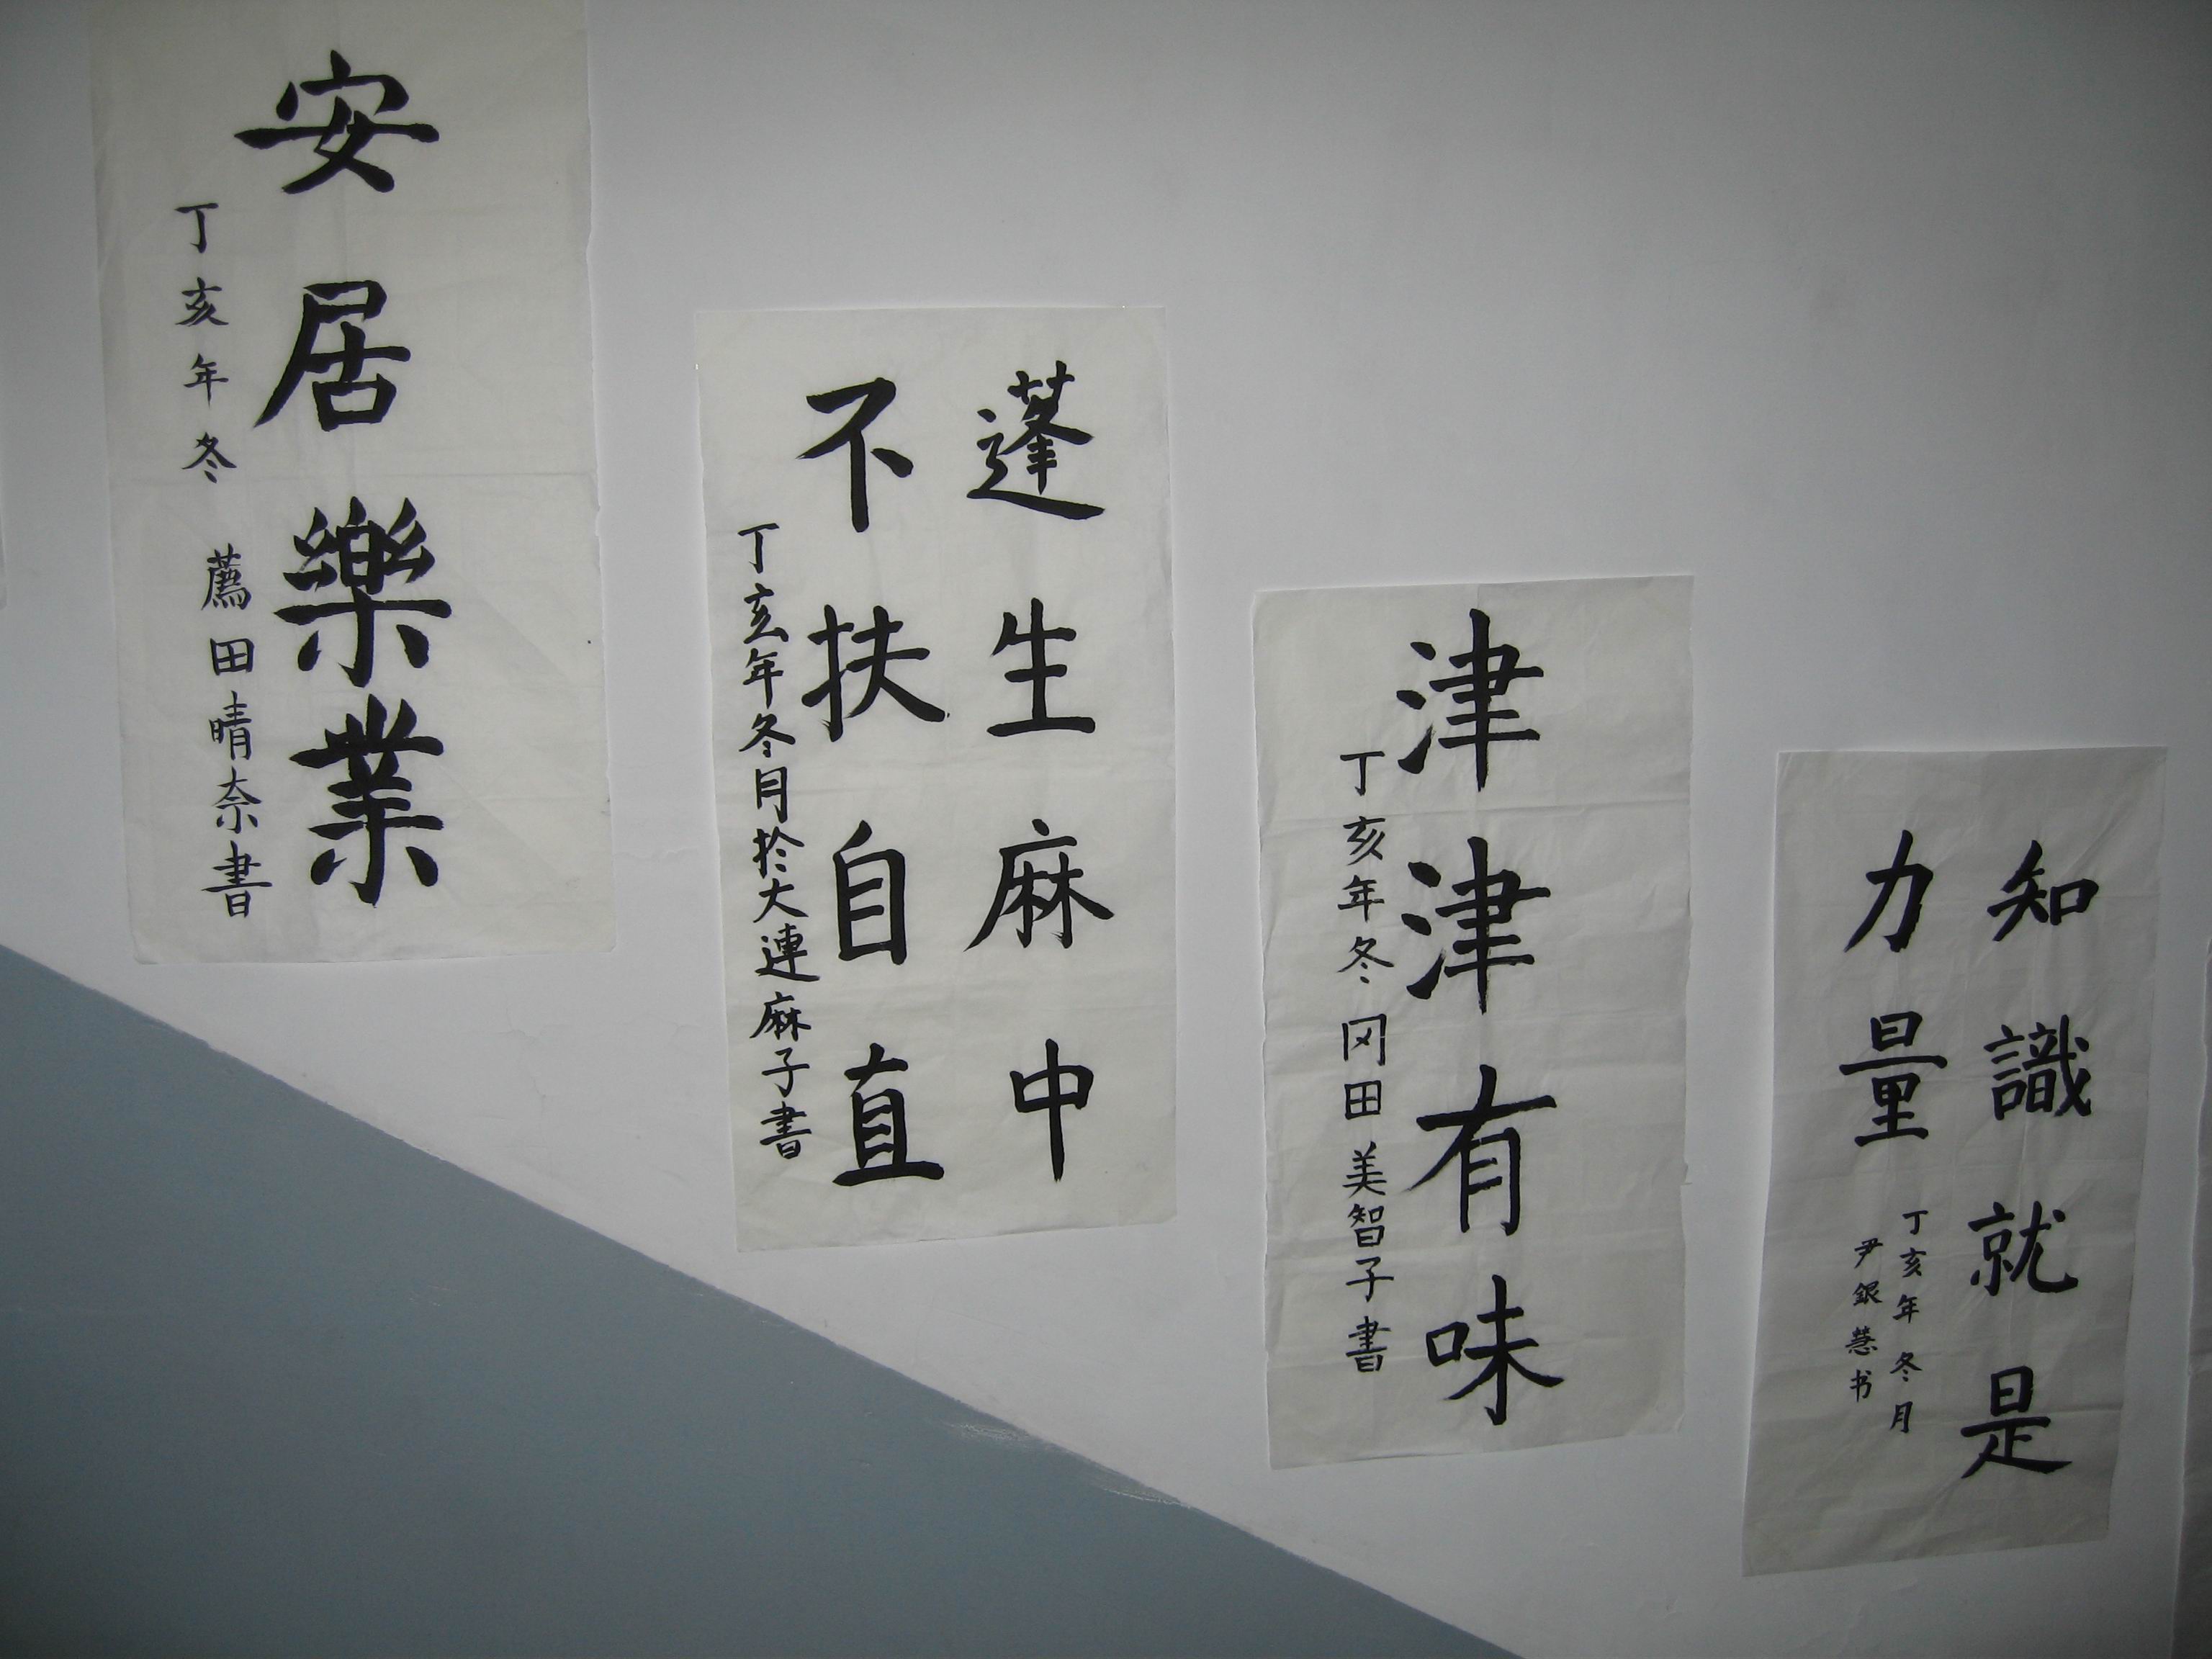 安居樂業
丁亥年冬 薦田晴奈書
蓬生麻中
不扶自直
丁亥年冬月於大連麻子書
津津有味
丁亥年冬 冈田美智子書
知識就是
力量
丁亥年冬月
尹銀慧书